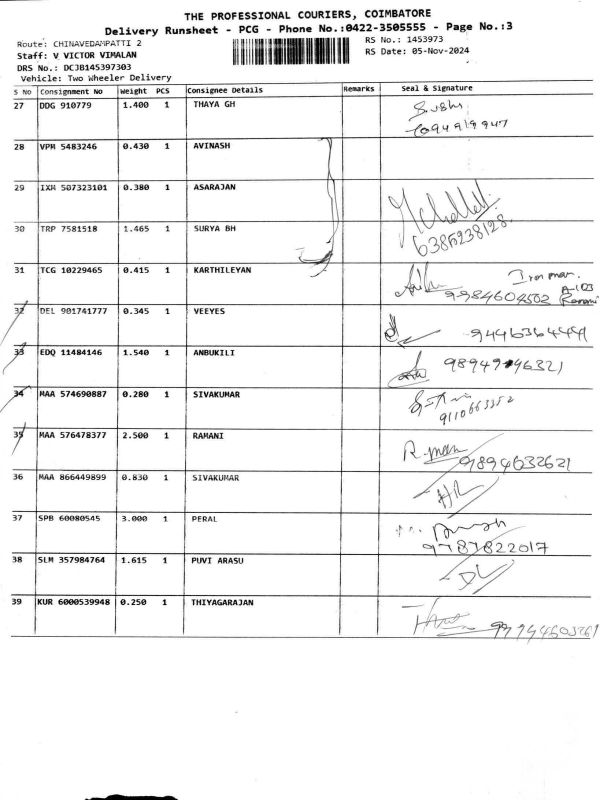 THE PROFESSIONAL COURIERS, COIMBATORE
Delivery Runsheet - PCG - Phone No.:0422-3505555 - Page No.:3
Route: CHINAVEDAMPATTI 2
RS No.: 1453973
Staff: V VICTOR VIMALAN
RS Date: 05-Nov-2024
DRS No.: DCJB145397303
Vehicle: Two Wheeler Delivery
S No Consignment No Weight PCS Consignee Details Remarks Seal & Signature
27 DDG 910779 1.400 1 THAYA GH
28 VPM 5483246 0.430 1 AVINASH
29 IXM 507323101 0.380 1 ASARAJAN
30 TRP 7581518 1.465 1 SURYA BH
6385238128
31 TCG 10229465 0.415 1 KARTHILEYAN
Iron man.
9984604502
32 DEL 901741777 0.345 1 VEEYES
9446364441
33 EDQ 11484146 1.540 1 ANBUKILI
34 MAA 574690887 0.280 1 SIVAKUMAR
9110663352
35 MAA 576478377 2.500 1 RAMANI
9894632621
36 MAA 866449899 0.830 1 SIVAKUMAR
37 SPB 60080545 3.000 1 PERAL
9787822017
38 SLM 357984764 1.615 1 PUVI ARASU
39 KUR 6000539948 0.250 1 THIYAGARAJAN